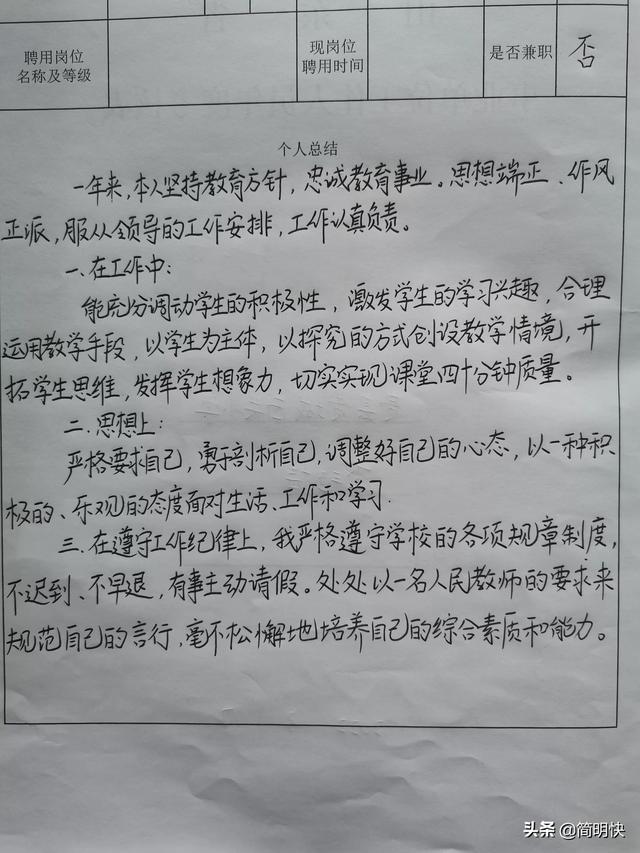 聘用岗位
名称及等级
现岗位
聘用时间
是否兼职
否
个人总结
一年来,本人坚持教育方针,忠诚教育事业。思想端正、作风
正派,服从领导的工作安排,工作认真负责。
一、在工作中:
能充分调动学生的积极性,激发学生的学习兴趣,合理
运用教学手段,以学生为主体,以探究的方式创设教学情境,开
拓学生思维,发挥学生想象力,切实实现课堂四十分钟质量。
二、思想上:
严格要求自己,勇于剖析自己,调整好自己的心态,以一种积
极的、乐观的态度面对生活、工作和学习.
三、在遵守工作纪律上,我严格遵守学校的各项规章制度,
不迟到、不早退,有事主动请假。处处以一名人民教师的要求来
规范自己的言行,毫不松懈地培养自己的综合素质和能力。
头条 @简明快